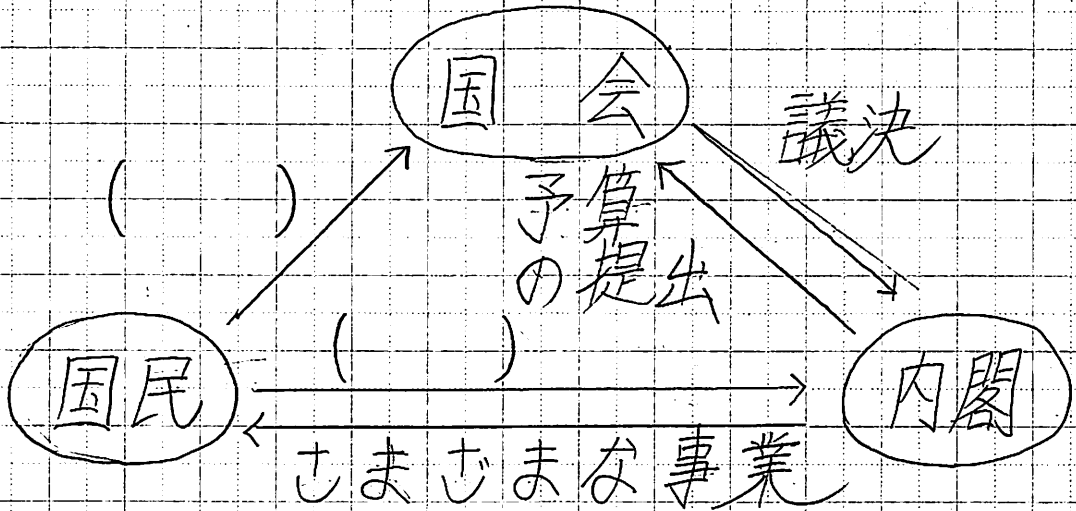 国会
議決
(　　)
予算
の提出
(　　)
国民
内閣
さまざまな事業